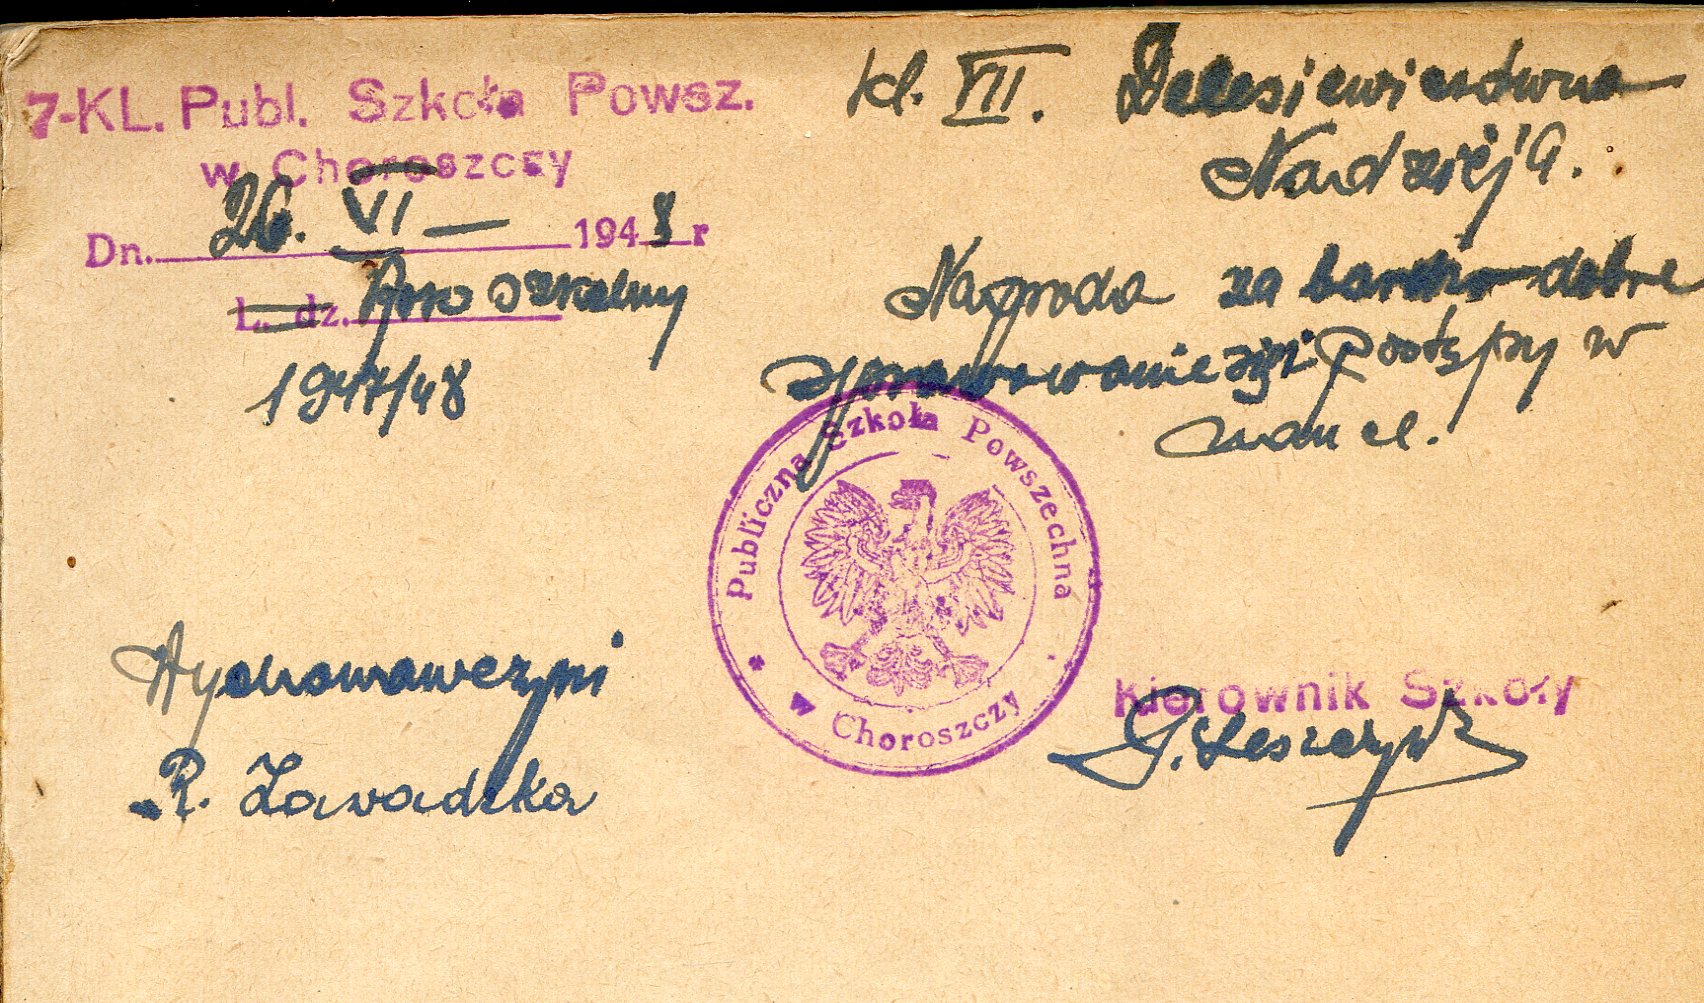 7-KL. Publ. Szkoła Powsz.
w Choroszczy
Dn. 26. VI — 1948 r
L. dz. Rok szkolny
1947/48
kl. VII.
Nadzieja.
Nagroda za bardzo dobre
sprawowanie się i postępy w
nauce.
Publiczna Szkoła Powszechna
* w Choroszczy *
Wychowawczyni
R. Zawadzka
Kierownik Szkoły